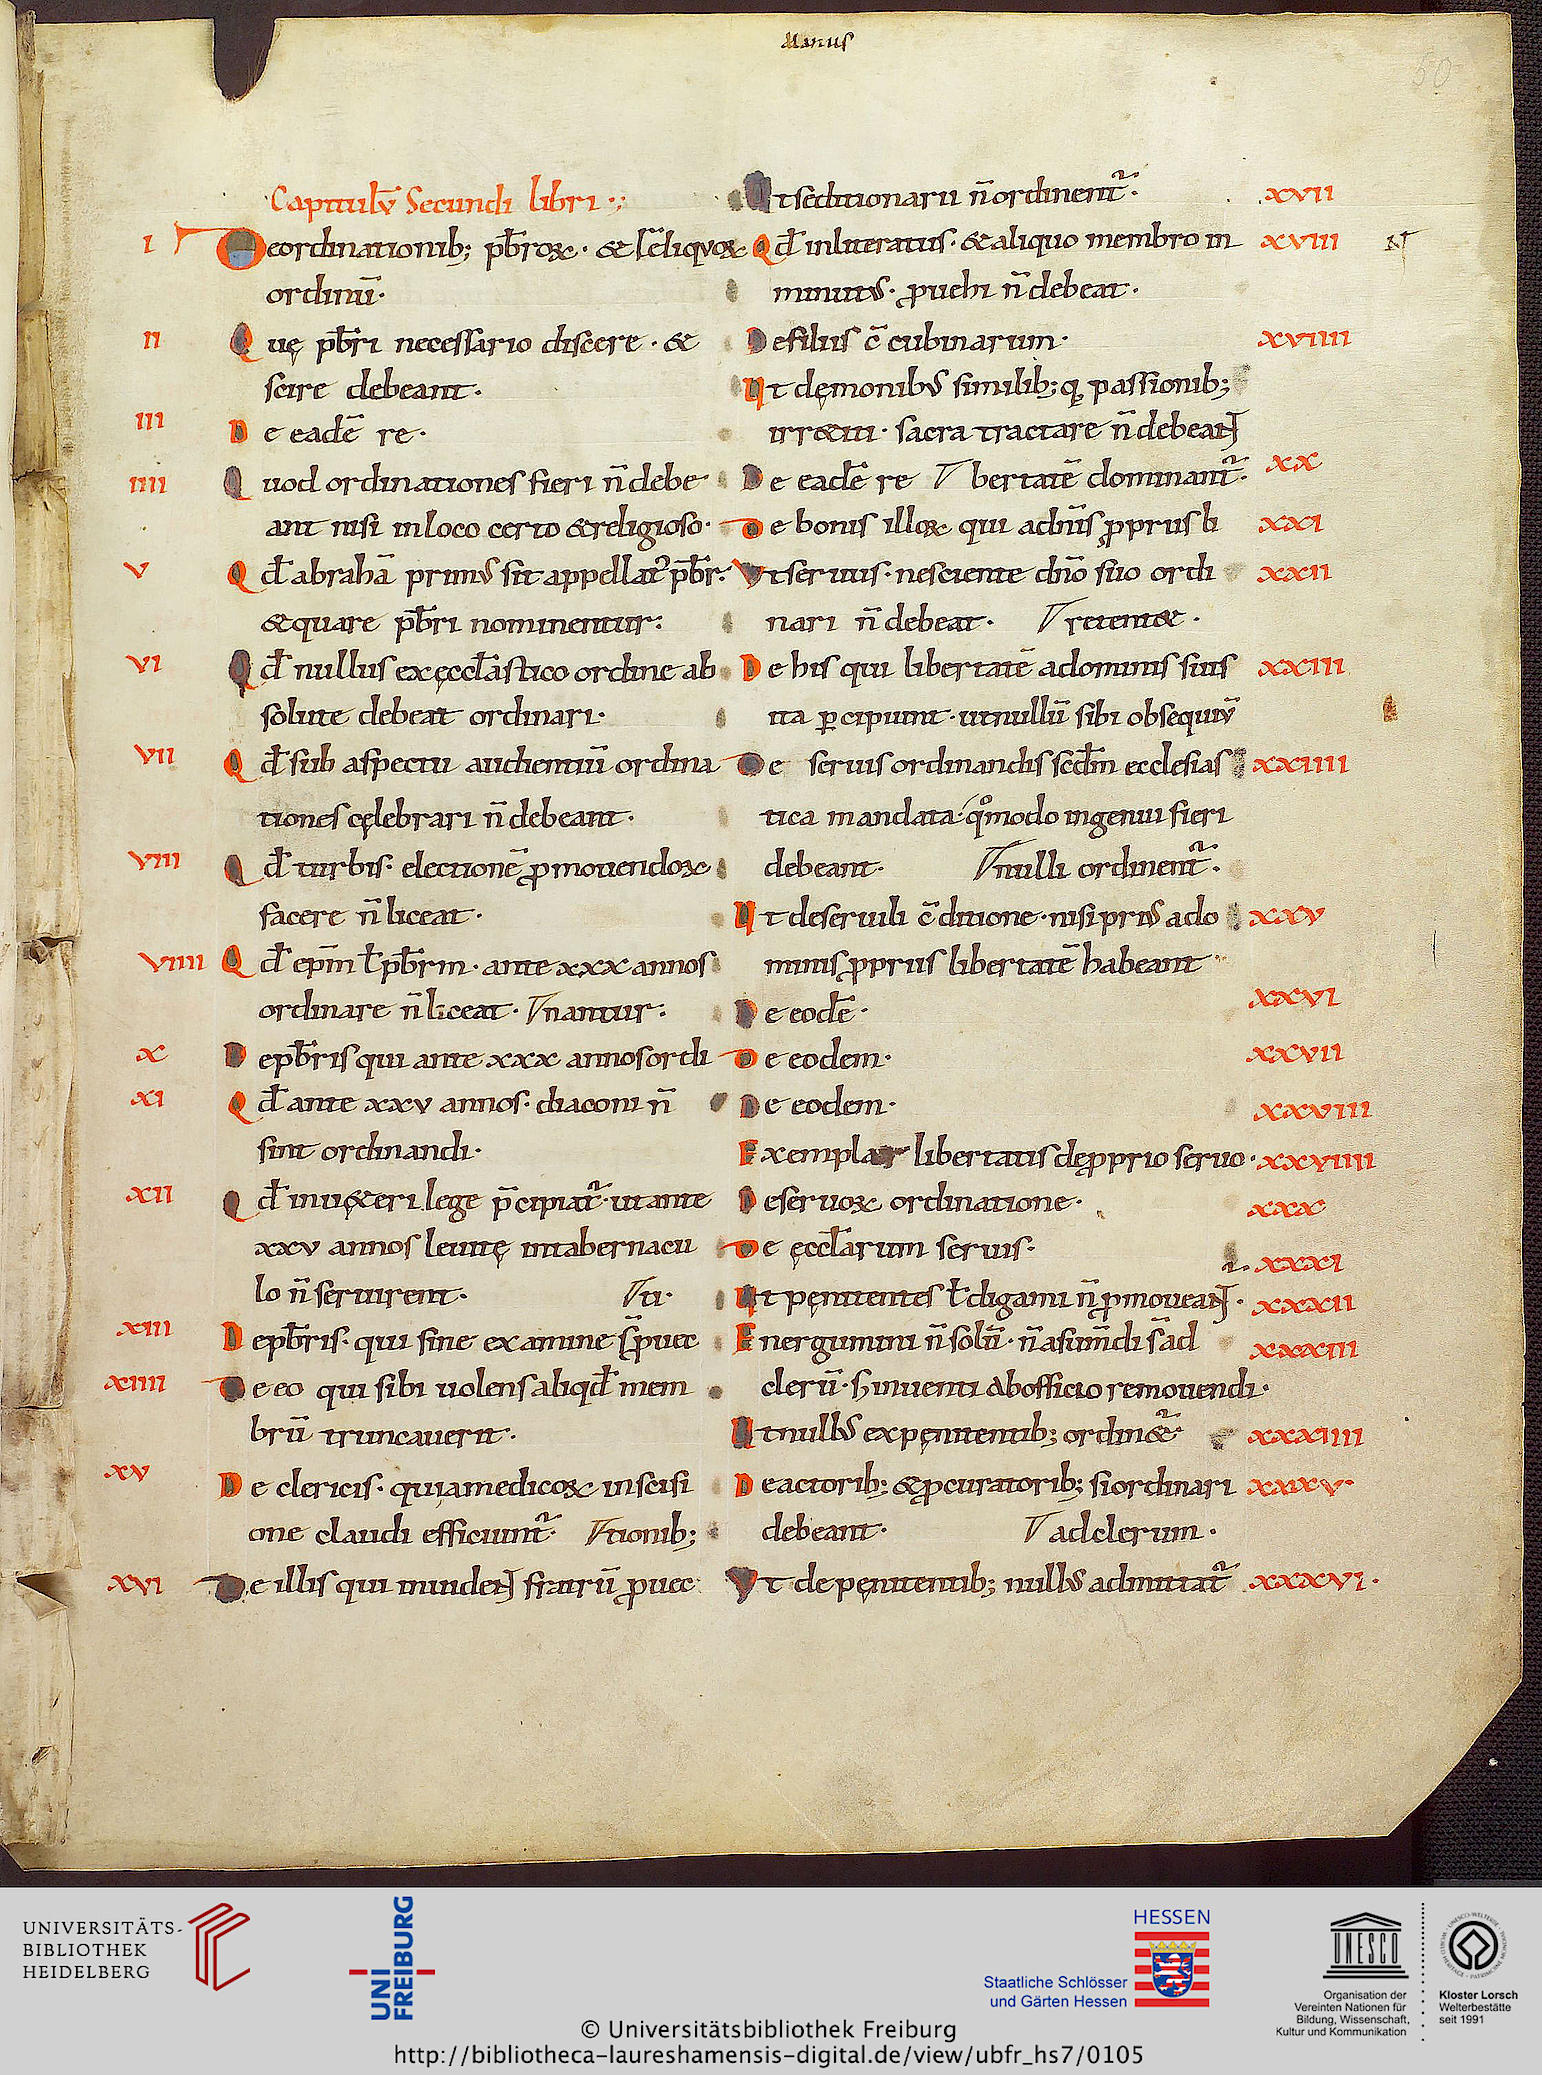 Manus
50
Capitulū Secundi libri
I Deordinationib; pb̄roꝝ. & rłiquoꝝ
ordinū.
II Que pb̄ri necessario discere. &
scire debeant.
III De eadē re.
IIII Quod ordinationes fieri n̄ debe
ant nisi inloco certo &religioso.
V Qđ abrahā primus sit appellat̃ pb̄r.
&quare pb̄ri nominentur:
VI Qđ nullus exęccłastico ordine ab
solute debeat ordinari.
VII Qđ sub aspectu audientiū ordina
tiones cęlebrari n̄ debeant.
VIII Qđ turbis. electionē ꝓmouendoꝝ
facere n̄ liceat.
VIIII Qđ ep̄m ł pb̄rm. ante xxx annos
ordinare n̄ liceat. nantur:
X Depb̄ris qui ante xxx annos ordi
XI Qđ ante xxv annos. diaconi n̄
sint ordinandi.
XII Qđ inu&eri lege p̄cipiat̃. ut ante
xxv annos leuitę intabernacu
lo n̄ seruirent. ti.
XIII Depb̄ris. qui sine examine s̄ ꝓuec
XIIII De eo qui sibi uolens aliqđ mem
brū truncauerit.
XV De clericis. qui amedicoꝝ inscisi
one claudi efficiunt̃. tionib;
XVI De illis qui inuident fratrū ꝓuec
Ut seditionarii n̄ ordinent̃. XVII
Qđ inliteratus. &aliquo membro in XVIII N
minutus. ꝓuehi n̄ debeat.
De filiis c̄cubinarum. XVIIII
Ut dęmonibus similib;q; passionib;
irr&iti. sacra tractare n̄ debeant
De eadē re bertatē dominant̃. XX
De bonis illoꝝ qui adn̄is ꝓprus li XXI
Ut seruus. nesciente dn̄o suo ordi XXII
nari n̄ debeat. retent&.
De his qui libertatē adominis suis XXIII
ita ꝑcipiunt. utnullū sibi obsequiū
De seruis ordinandis scđm ecclesias XXIIII
tica mandata. qmodo ingenui fieri
debeant. nulli ordinent̃.
Ut deseruili c̄ditione. nisi prius ado XXV
minis ꝓpriis libertatē habeant
De eodē. XXVI
De eodem. XXVII
De eodem. XXVIII
Exemplar libertatis deꝓprio seruo. XXVIIII
De seruoꝝ ordinatione. XXX
De ęccłarum seruis. XXXI
Ut pęnitentes ł digami n̄ ꝓmoueant. XXXII
Energumini n̄ solū. n̄ asum̄di s̄ ad XXXIII
clerū. s; inuenti abofficio remouendi.
Ut nullus expęnitentib; ordin&̃ XXXIIII
De actorib; &ꝓcuratorib; si ordinari XXXV
debeant. adclerum.
Ut de pęnitentib; nullus admittat̃ XXXVI.
UNIVERSITÄTS-
BIBLIOTHEK
HEIDELBERG
UNI
FREIBURG
HESSEN
Staatliche Schlösser
und Gärten Hessen
UNESCO
Organisation der
Vereinten Nationen für
Bildung, Wissenschaft,
Kultur und Kommunikation
Kloster Lorsch
Welterbestätte
seit 1991
© Universitätsbibliothek Freiburg
http://bibliotheca-laureshamensis-digital.de/view/ubfr_hs7/0105